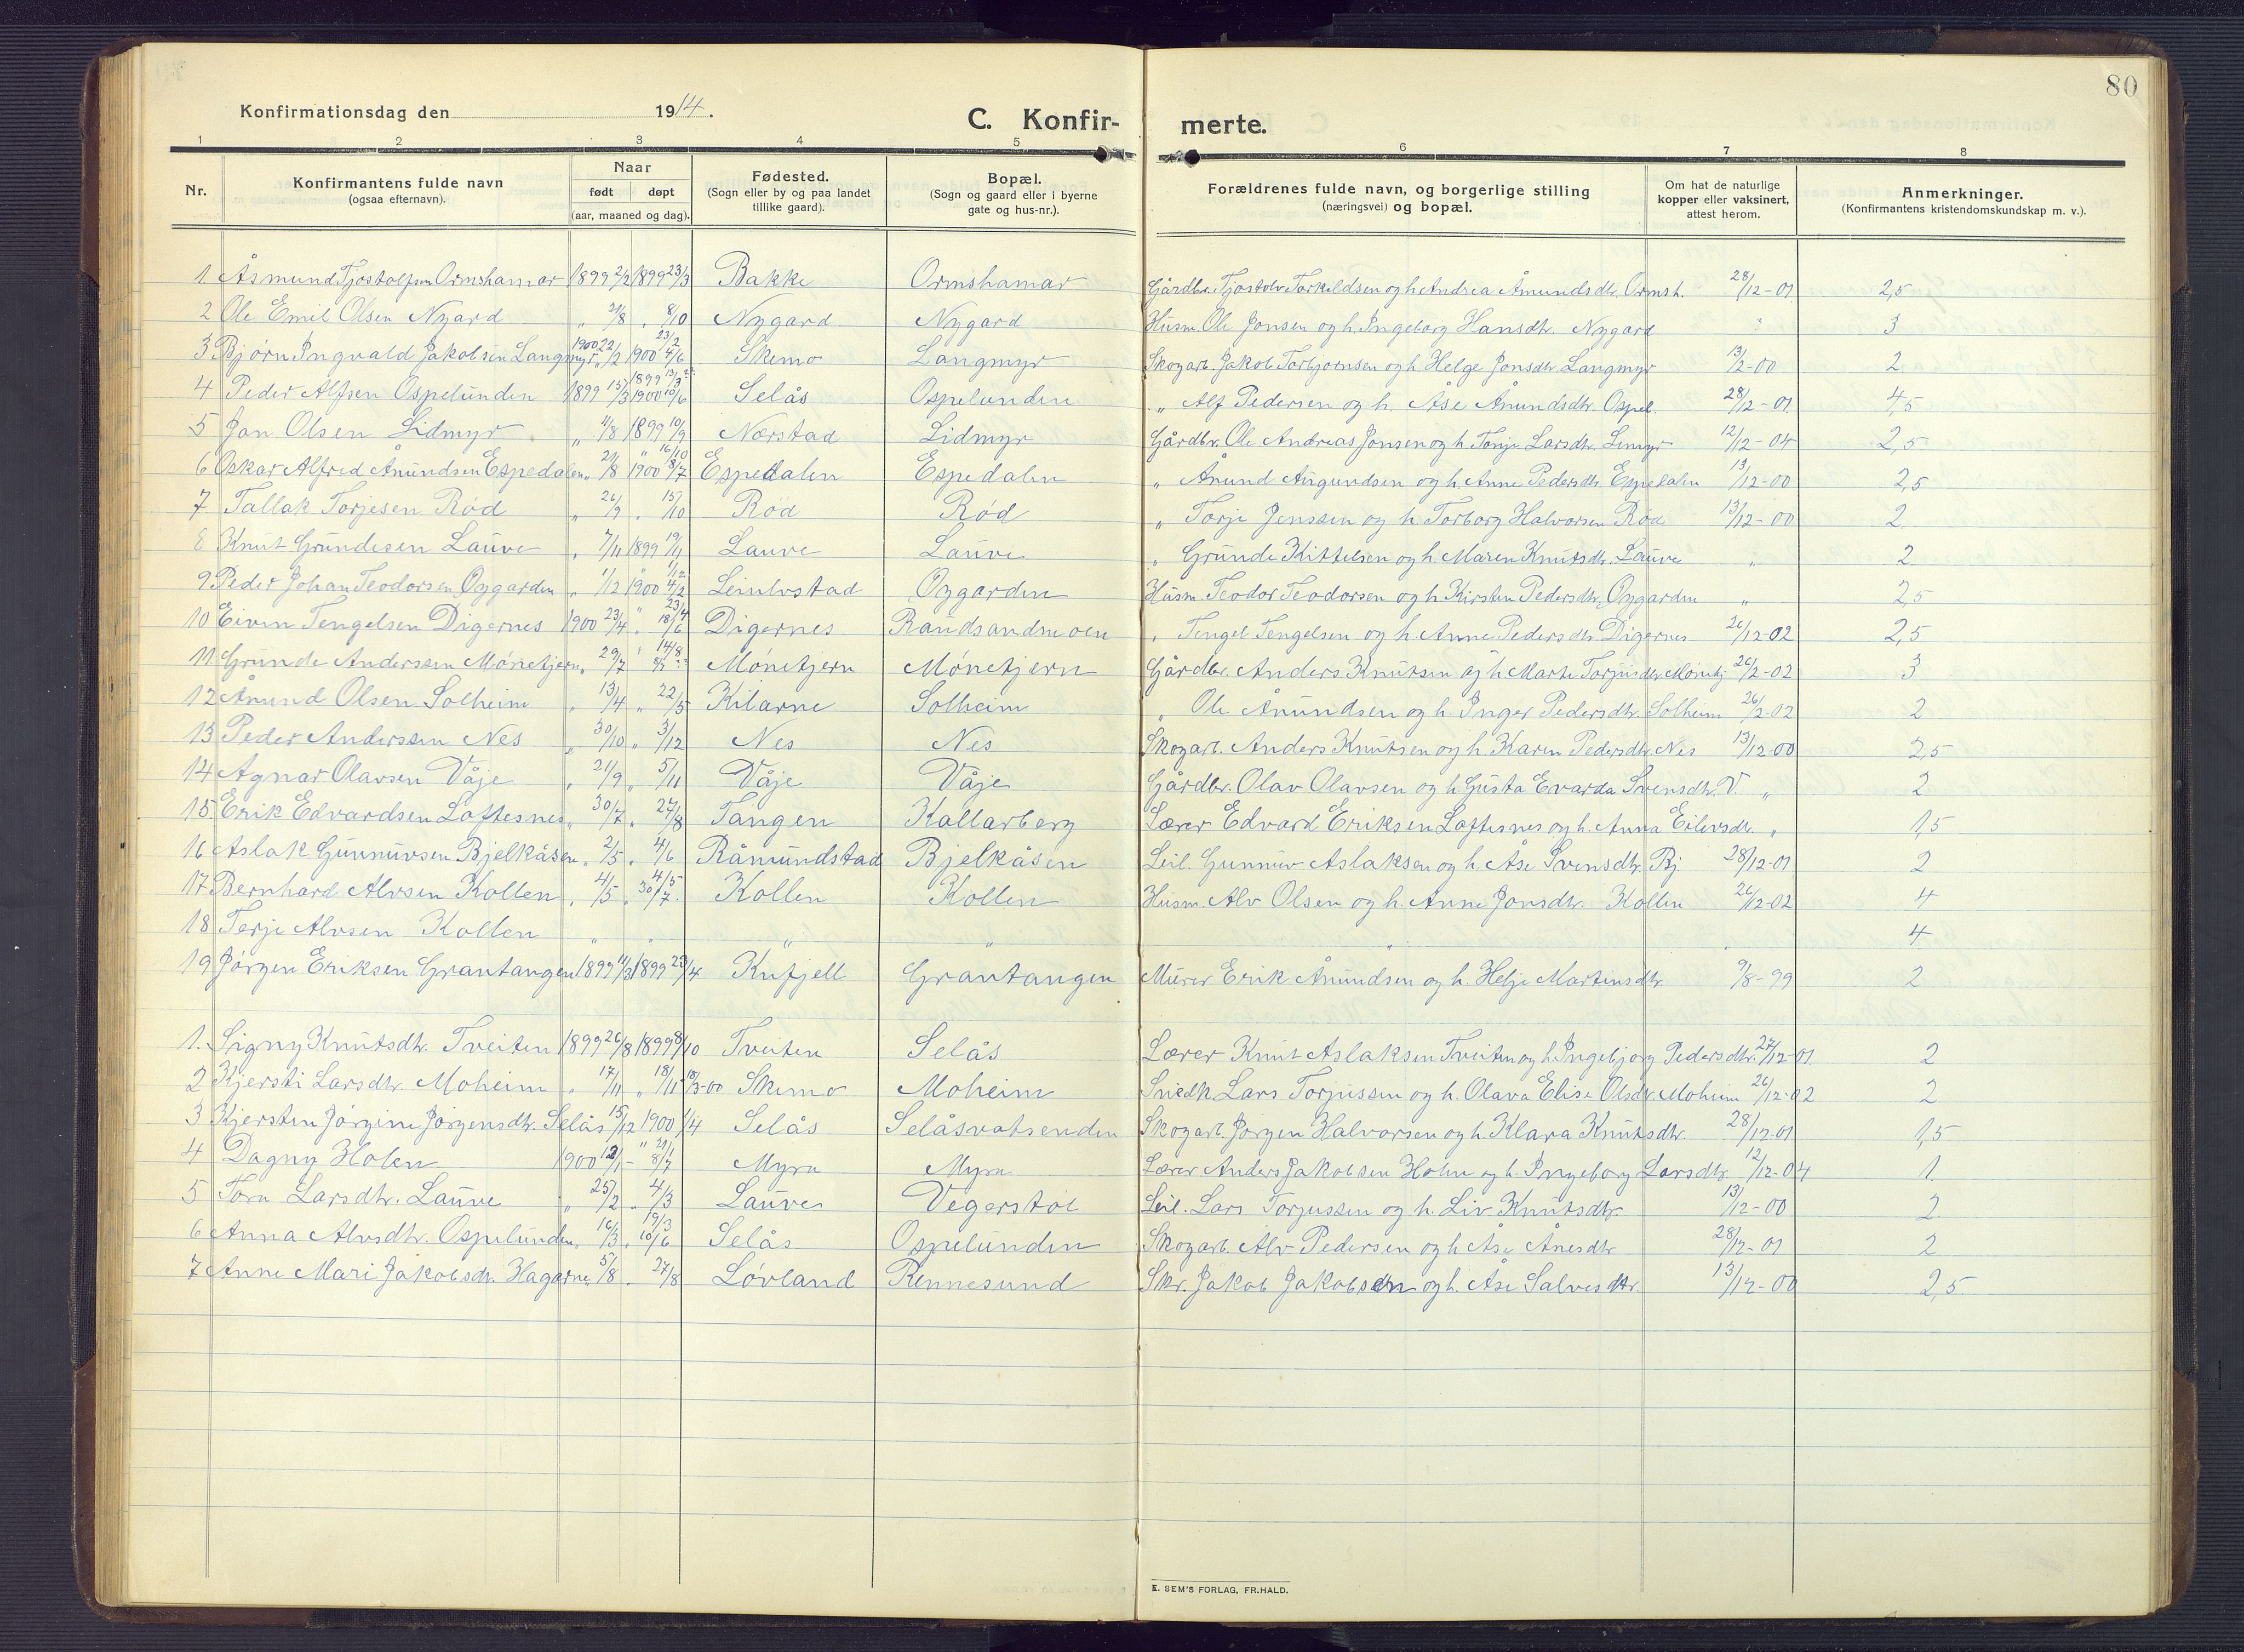 80
Konfirmationsdag den 1914.
C. Konfir- merte.
1 2 3 4 5 6 7 8
Nr. Konfirmantens fulde navn (ogsaa efternavn). Naar født døpt (aar, maaned og dag). Fødested. (Sogn eller by og paa landet tillike gaard). Bopæl. (Sogn og gaard eller i byerne gate og hus-nr.). Forældrenes fulde navn, og borgerlige stilling (næringsvei) og bopæl. Om hat de naturlige kopper eller vaksinert, attest herom. Anmerkninger. (Konfirmantens kristendomskundskap m. v.).
1 Åsmund Tjostolfsen Ormshamar 1899 2/2 1899 23/3 Bakke Ormshamar Gårdbr. Tjostolv Torkildsen og h. Andrea Åmundsdtr. Ormsh. 28/12-01 2,5
2 Ole Emil Olsen Nygard " 2/8 " 8/10 Nygard Nygard Husm. Ole Jonsen og h. Ingeborg Hansdtr. Nygard " 3
3 Bjørn Ingvald Jakobsen Langmyr 1900 22/2 1900 23/2 4/6 Skimo Langmyr Skogarb. Jakob Torbjørnsen og h. Helge Jonsdtr. Langmyr 13/2-00 2
4 Peder Alfsen Ospelunden 1899 15/3 1899 1900 10/6 Selås Ospelunden " Alf Pedersen og h. Åse Ånundsdtr. Ospel. 28/12-01 4,5
5 Jon Olsen Lidmyr " 11/8 1899 10/9 Nærstad Lidmyr Gårdbr. Ole Andreas Jonsen og h. Tonje Larsdtr. Limyr 12/12-04 2,5
6 Oskar Alfred Ånundsen Espedalen " 21/8 " 16/10 1900 8/7 Espedalen Espedalen " Ånund Augundsen og h. Anne Pedersdtr. Espedalen 13/12-00 2,5
7 Tallak Torjesen Rød " 26/9 " 15/10 Rød Rød " Torje Jenssen og h. Torborg Halvorsen Rød 13/12-00 2
8 Knut Grundesen Lauve " 7/11 1899 19/11 Lauve Lauve " Grunde Kittelsen og h. Maren Knutsdtr. Lauve " 2
9 Peder Johan Teodorsen Øygarden " 1/12 " 1/12 1900 4/2 Leinlvstad Øygarden Husm. Teodor Teodorsen og h. Kirsten Pedersdtr. Øygarden " 2,5
10 Eivin Tengelsen Digernes 1900 23/4 " 23/4 18/6 Digernes Raudsandmoen " Tengel Tengelsen og h. Anne Pedersdtr. Digernes 26/12-02 2,5
11 Grunde Anderssen Mónetjern " 29/7 " 14/8 Mónetjern Mónetjern Gårdbr. Anders Knutsen og h. Marte Torjusdtr. Mónetj 26/2-02 3
12 Ånund Olsen Solheim " 13/4 " 22/5 Kilarne Solheim " Ole Ånundsen og h. Inger Pedersdtr. Solheim 26/2-02 2
13 Peder Anderssen Nes " 30/10 " 3/12 Nes Nes Skogarb. Anders Knutsen og h. Karen Pedersdtr. Nes 13/12-00 2,5
14 Agnar Olavsen Våje " 21/9 " 5/11 Våje Våje Gårdbr. Olav Olavsen og h. Gusta Evarda Svensdtr. V. " 2
15 Erik Edvardsen Loftesnes " 30/7 " 27/8 Tangen Kallarberg Lærer Edvard Eriksen Loftesnes og h. Anna Eilevsdtr. " 1,5
16 Aslak Gunnuvsen Bjelkåsen " 2/5 " 4/6 Råmundstad Bjelkåsen Leil. Gunnuv Aslaksen og h. Åse Svensdtr. Bj. 28/12-01 2
17 Bernhard Alvsen Kollen " 4/5 " 4/5 30/7 Kollen Kollen Husm. Alv Olsen og h. Anne Jonsdtr. Kollen 26/12-02 4
18 Terje Alvsen Kollen " " " " " " 4
19 Jórgen Eriksen Grantangen 1899 11/3 1899 23/4 Knfjell Grantangen Murer Erik Ånundsen og h. Helje Martinsdtr. 9/8-99 2
1. Signy Knutsdtr. Tveiten 1899 26/8 1899 8/10 Tveiten Selås Lærer Knut Aslaksen Tveiten og h. Ingebjørg Pedersdtr. 27/12-01. 2
2 Kjersti Larsdtr. Moheim " 17/11 " 18/11 18/3-00 Skimo Moheim Snedk. Lars Torjussen og h. Olava Elise Olsdtr. Moheim 26/12-02 2
3 Kjersten Jórgine Jórgensdtr. Selås 15/12 1900 1/4 Selås Selåsvatsenden Skogarb. Jórgen Halvorsen og h. Klara Knutsdtr. 28/12-01 1,5
4 Dagny Holen 1900 12/1 " 21/1 8/7 Myra Myra Lærer Anders Jakobsen Holen og h. Ingeborg Larsdtr. 12/12-04 1.
5 Tora Larsdtr. Lauve " 25/2 " 4/3 Lauve Vegerstøl Leil. Lars Torjussen og h. Liv Knutsdtr. 13/12-00 2
6 Anna Alvsdtr. Ospelunden " 16/3 " 19/3 10/6 Selås Ospelunden Skogarb. Alv Pedersen og h. Åse Ånesdtr. 28/12-01 2
7 Anne Mari Jakobsdtr. Hagarne " 5/8 " 27/8 Løvland Rennesund Skr. Jakob Jakobsen og h. Åse Salvesdtr. 13/12-00 2,5
E. SEM'S FORLAG, FR.HALD.